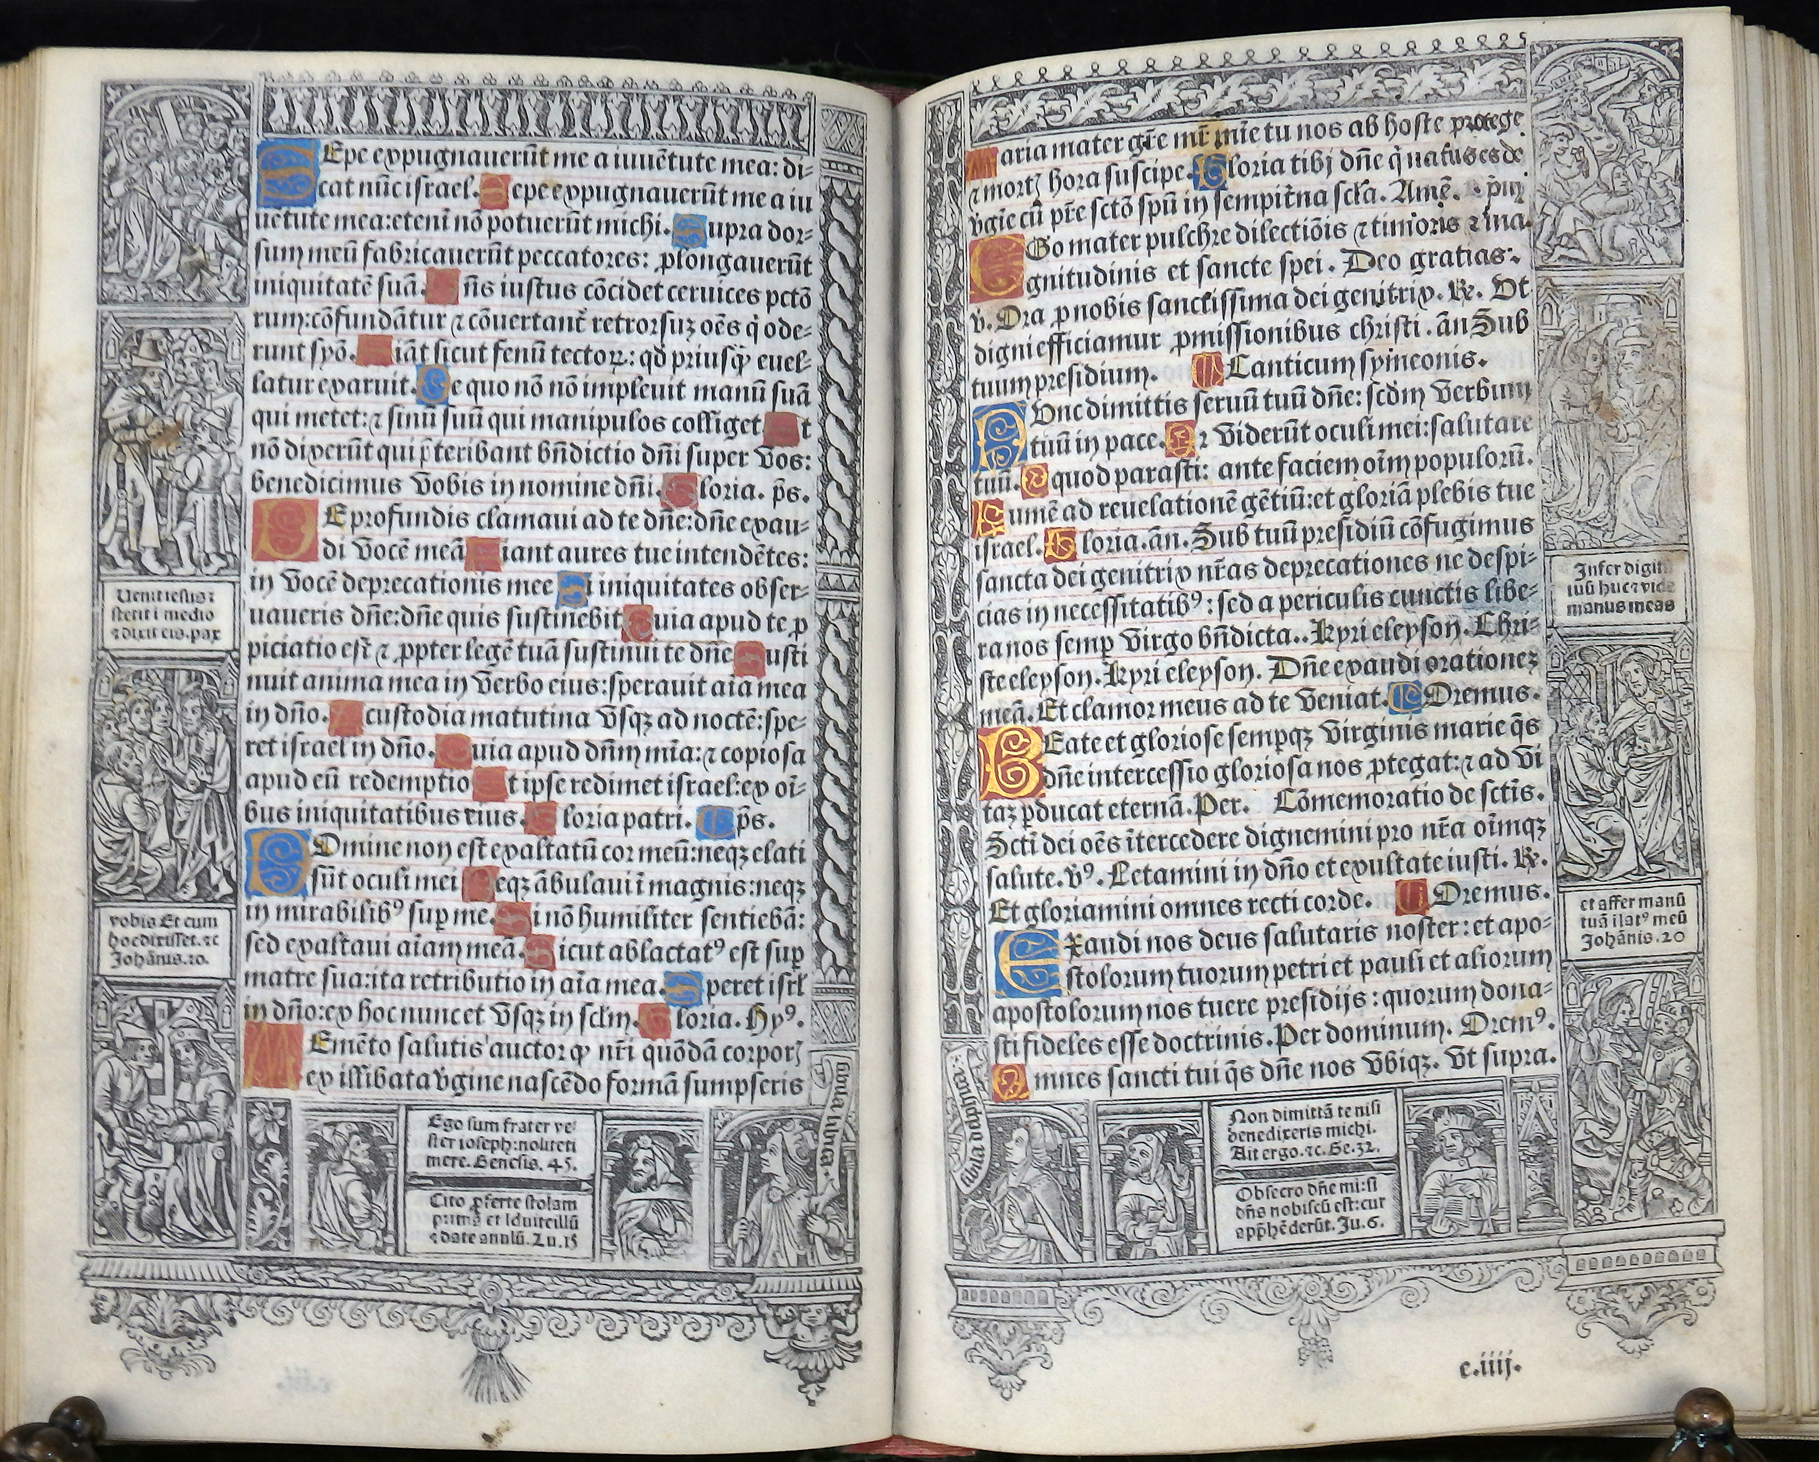 SEpe expugnauerūt me a iuuētute mea: di-
cat nūc israel. Sepe expugnauerūt me a iu
uētute mea: etenī nō potuerūt michi. Supra dor-
sum meū fabricauerūt peccatores: ꝓlongauerūt
iniquitatē suā. Dn̄s iustus cōcidet ceruices pctō
rum: cōfundātur ⁊ cōuertant̄ retrorsuꝫ oēs q̇ ode-
runt syō. Fiāt sicut fenū tectoꝝ: qd̄ priusq̄ȝ euel-
latur exaruit. De quo nō nō impleuit manū suā
qui metet: ⁊ sinū suū qui manipulos colliget Et
nō dixerūt qui p̄teribant bn̄dictio dn̄i super vos:
benedicimus vobis in nomine dn̄i. Gloria. p̄s.
DE profundis clamaui ad te dn̄e: dn̄e exau-
di vocē meā Fiant aures tue intendētes:
in vocē deprecationis mee Si iniquitates obser-
uaueris dn̄e: dn̄e quis sustinebit Quia apud te ꝓ
piciatio est ⁊ ꝓpter legē tuā sustinui te dn̄e Susti
nuit anima mea in verbo eius: sperauit aīa mea
in dn̄o. A custodia matutina vsqꝫ ad noctē: spe-
ret israel in dn̄o. Quia apud dn̄m mīa: ⁊ copiosa
apud eū redemptio Et ipse redimet israel: ex oī-
bus iniquitatibus eius. Gloria patri. p̄s.
DOmine non est exaltatū cor meū: neqꝫ elati
sūt oculi mei Neqꝫ ābulaui ī magnis: neqꝫ
in mirabilibꝰ suꝑ me. Si nō humiliter sentiebā:
sed exaltaui aīam meā. Sicut ablactatꝰ est suꝑ
matre sua: ita retributio in aīa mea. Speret isrl̄
in dn̄o: ex hoc nunc et vsqꝫ in sclm̄. Gloria. Hyꝰ.
MEmēto salutis auctor qꝫ nr̄i quōdā corporꝭ
ex illibata v̇gine nascēdo formā sumpseris
Uenit iesus ⁊
stetit ī medio
⁊ dixit eis. pax
vobis Et cum
hoc dixisset. ⁊c
Johānis. 20.
Ego sum frater ve
ster ioseph: nolite ti
mere. Genesis. 45.
Cito ꝓferte stolam
primā et īduite illū
⁊ date anulū. Lu. 15
Maria mater gr̄e mr̄ mīe tu nos ab hoste protege
⁊ mortꝭ hora suscipe. Gloria tibj dn̄e q̇ natus es de
v̇gie cū pr̄e sctō spū in sempit̄na scl̄a. Amē.
EGo mater pulchre dilectiōis ⁊ timoris ⁊ ma
gnitudinis et sancte spei. Deo gratias.
v. Ora ꝓ nobis sanctissima dei genitrix. ℟. Ut
digni efficiamur ꝓmissionibus christi. añ Sub
tuum presidium. Canticum symeonis.
NUnc dimittis seruū tuū dn̄e: scdm̄ verbum
tuū in pace. Qr viderūt oculi mei: salutare
tuū. Quod parasti: ante faciem oīm populorū.
Lumē ad reuelationē gētiū: et gloriā plebis tue
israel. Gloria. añ. Sub tuū presidiū cōfugimus
sancta dei genitrix nr̄as deprecationes ne despi-
cias in necessitatibꝰ: sed a periculis cunctis libe-
ra nos semꝑ virgo bn̄dicta.. Kyri eleyson. Chri-
ste eleyson. Kyri eleyson. Dn̄e exaudi orationeꝫ
meā. Et clamor meus ad te veniat. Oremus.
BEate et gloriose sempqꝫ virginis marie q̄s
dn̄e intercessio gloriosa nos ꝓtegat: ⁊ ad vi
taꝫ ꝑducat eternā. Per. Cōmemoratio de sctīs.
Sctī dei oēs ītercedere dignemini pro nr̄a oīmqꝫ
salute. vꝰ. Letamini in dn̄o et exultate iusti. ℟.
Et gloriamini omnes recti corde. Oremus.
EXaudi nos deus salutaris noster: et apo-
stolorum tuorum petri et pauli et aliorum
apostolorum nos tuere presidijs: quorum dona-
sti fideles esse doctrinis. Per dominum. Oremꝰ.
Omnes sancti tui q̄s dn̄e nos vbiqꝫ. Ut supra.
Infer digitū
tuū huc ⁊ vide
manus meas
et affer manū
tuā ī latꝰ meū
Johānis. 20
Non dimittā te nisi
benedixeris michi.
Ait ergo. ⁊c. Ge. 32.
Obsecro dn̄e mi: si
dn̄s nobiscū est: cur
app̄hēderūt. Ju. 6.
c.iiij.